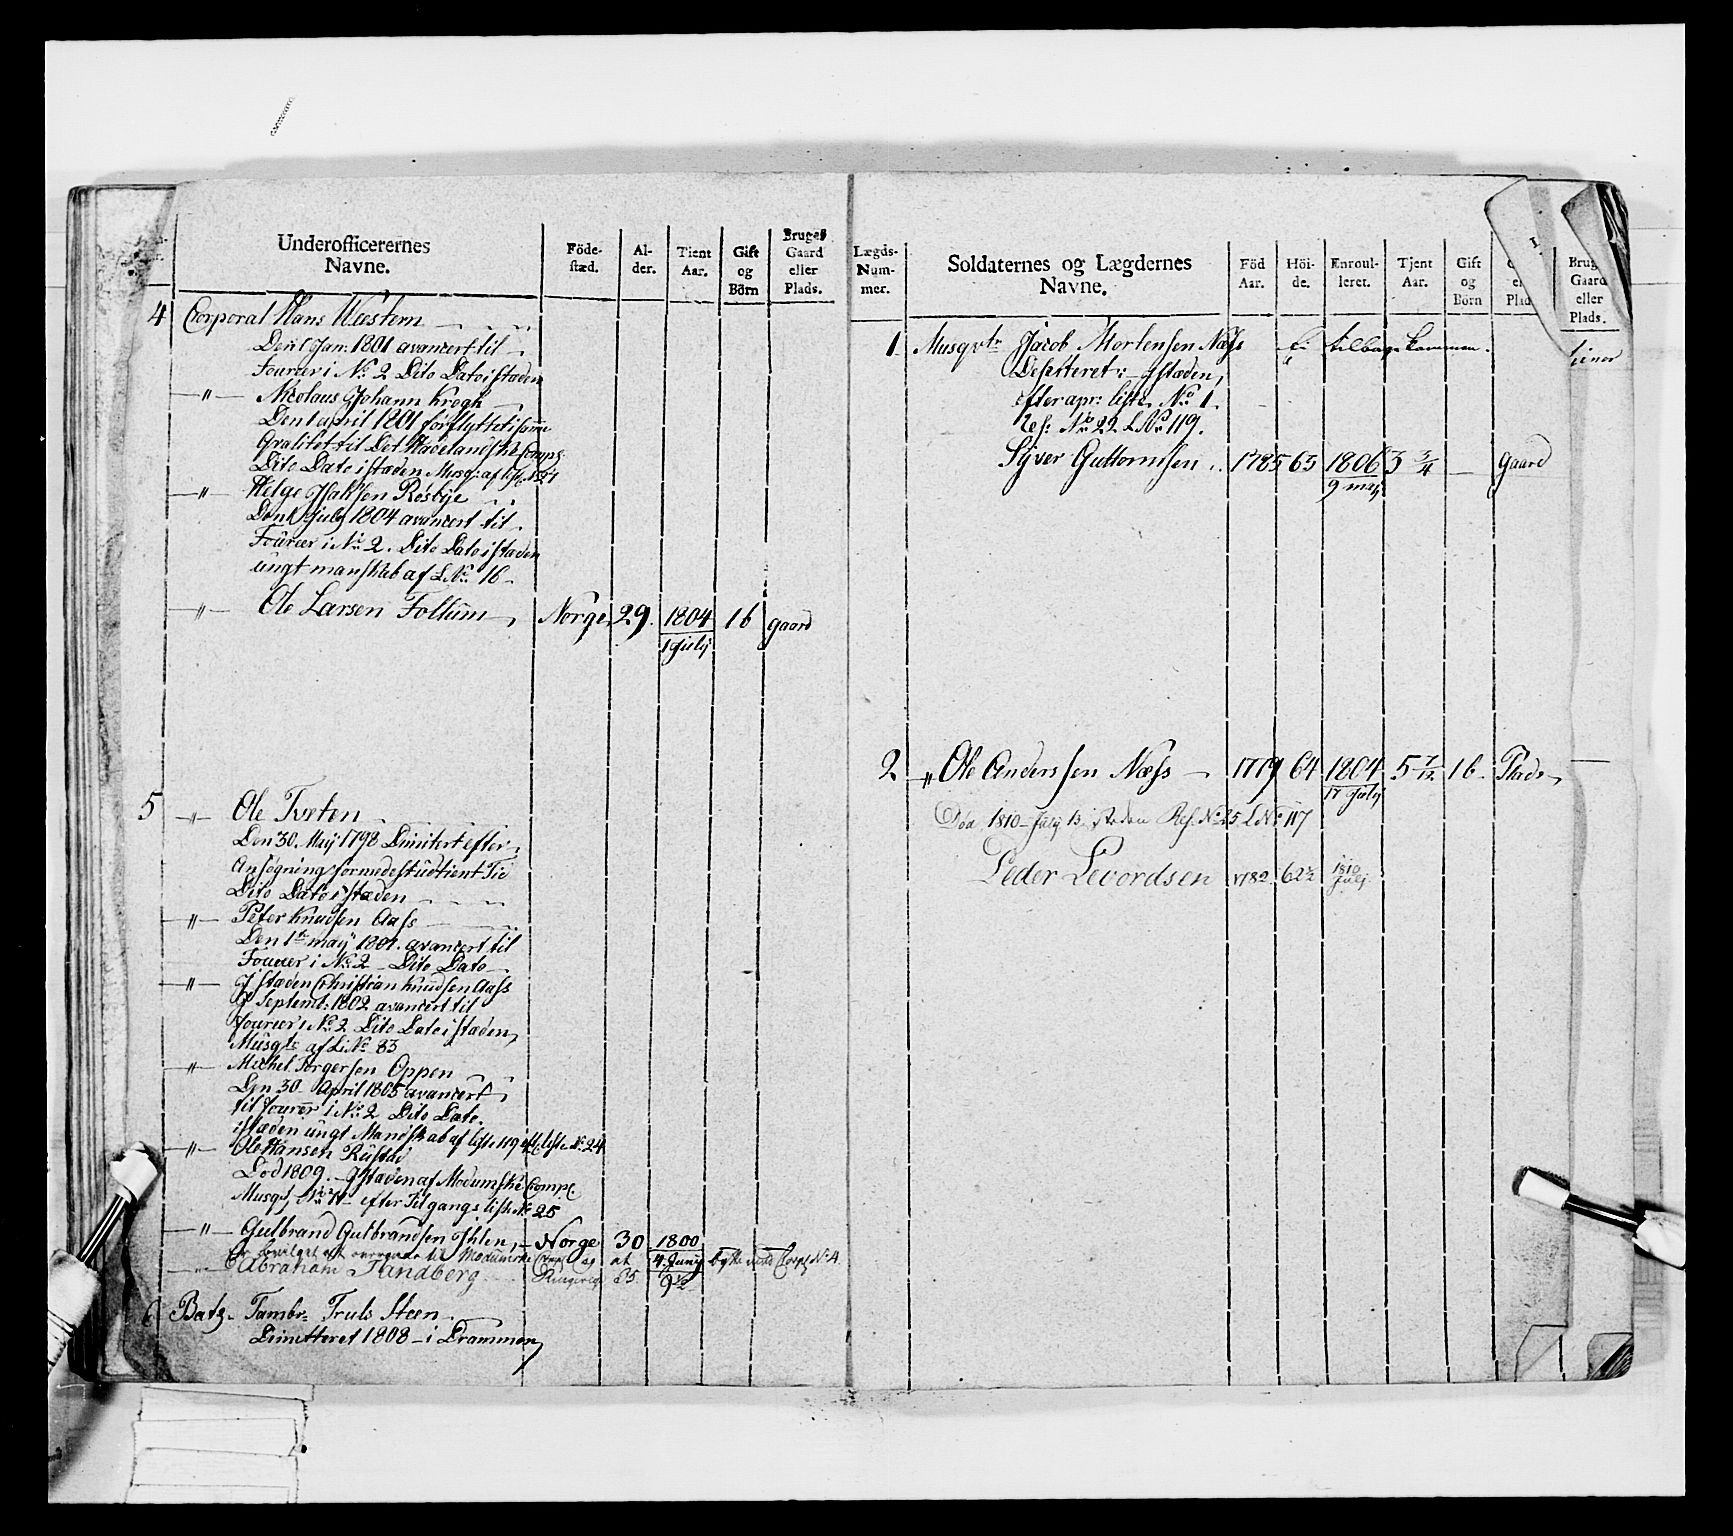 Underofficerernes
Navne.
Föde-
stæd.
Al-
der.
Tient
Aar.
Gift
og
Börn
Bruger
Gaard
eller
Plads.
4 Corporal Hans Westem
Den 1 Jan: 1801 avancert til
Fourier i No 2 Dito Dato i stæden
" Nicolaus Johann Krogh
Den 1 april 1801 forflyttet i samme
Qvalitet til Det Hadelandske Comp.
Dito Dato i stæden Musq: af
" Helge Isaksen Rosbye
Den 1 July 1804 avancert til
Fourier i No 2. Dito Dato i stæden
ungt manskab af L No 16
" Ole Larsen Follum Norge 29. 1804 16 gaard
1 July
5 " Ole Tvæten
Den 30 May 1798 Dimitert efter
Ansögning formedelst udtient Tid
Dito Dato i stæden
" Peter Knudsen Aass
Den 1te may 1801. avancert til
Fourier i No 2 Dito Dato
" I stæden Christian Knudsen Aass
Septemb: 1802 avancert til
Fourier i No 2 Dito Dato i stæden
Musqtr af L No 83
" Michel Torgersen Oppen
Den 30 April 1805 avancert
til Fourer i No 2 Dito Dato.
i stæden ungt Mandskab af liste 119 eft. liste No 24
" Ole Hansen Rustad
Död 1809. I stæden af Modumske Comp:
Musq: efter Tilgangs liste No 25
" Gulbrand Gulbrandsen Ihlen, Norge 30 1800
4 Juny
9 1/2
er bevilget at overgaae til Modumske Comp. og at bytte med Corpl No 4
" Abraham Sandberg Ringerig
6 Batg. Tambr: Truls Steen
Dimitteret 1808 i Drammen
Lægds-
Num-
mer.
Soldaternes og Lægdernes
Navne.
Föd
Aar.
Höi-
de.
Enroul-
leret.
Tjent
Aar.
Gift
og
Börn
Plad
Brug
Gaard
eller
Plads.
1 Musqvtr Jacob Mortensen Næss Ei tilbage kommen.
Deserteret: I stæden,
efter apr: liste No 1.
Res: No 22 L No 119.
Syver Guttormsen 1785 63 1806 3 3/4 Gaard
9 may
2 " Ole Anderssen Næss 1779 64 1804 5 7/12 16 Plads
17 July
Död 1810 July 13 i stæden Res. No 25 L No 117
Peder Levordsen 1782 62 1/2 1810
July